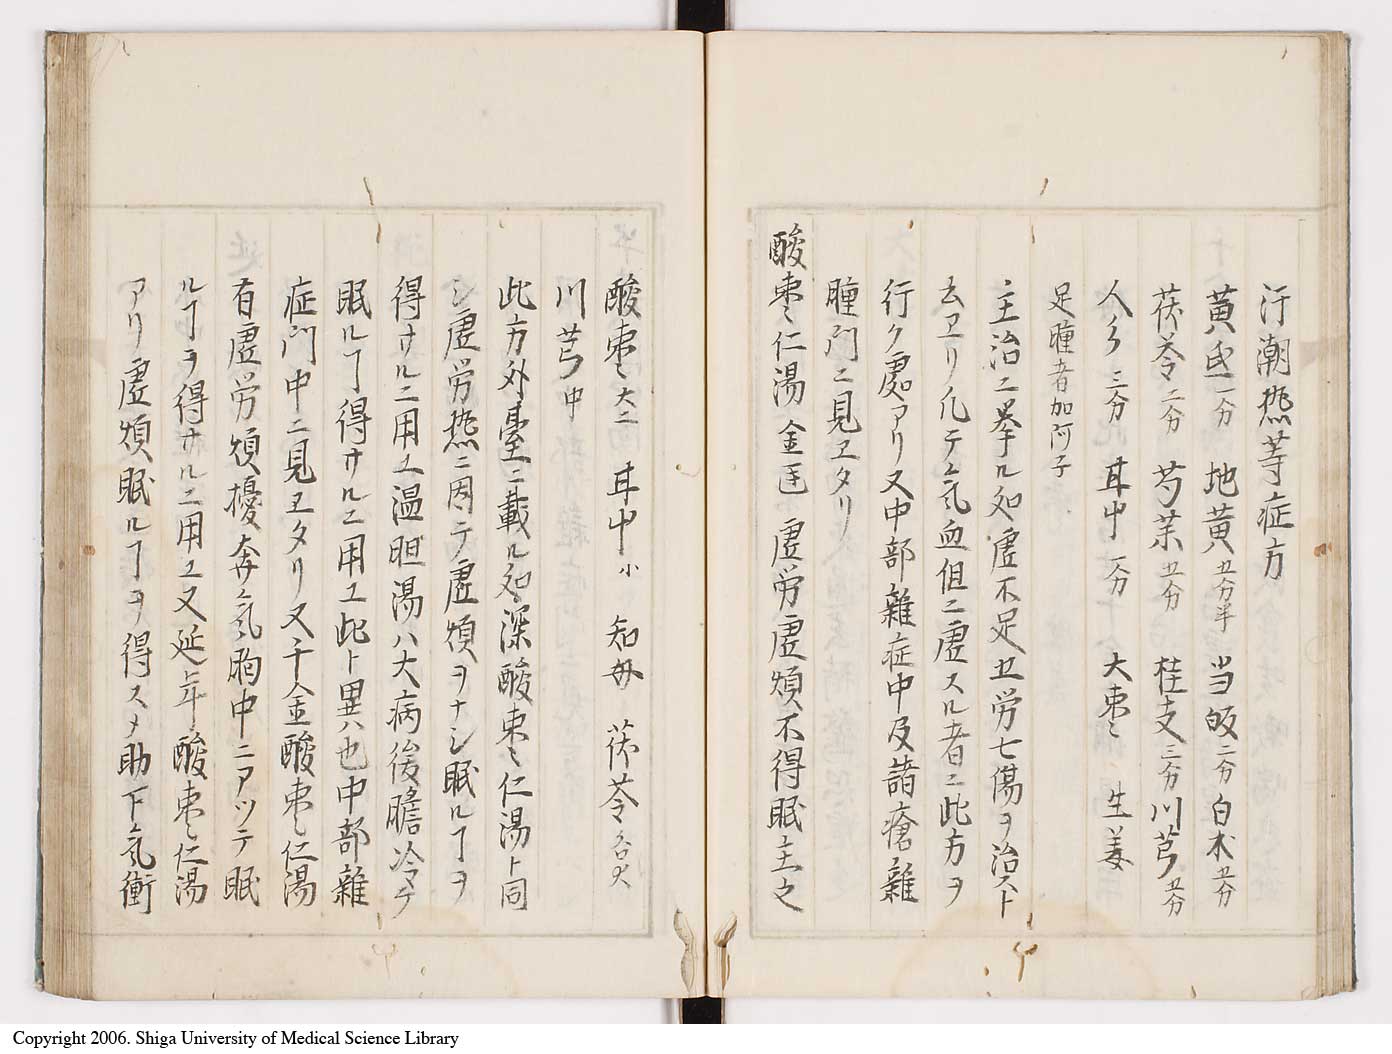 汗潮熱等症方
黄芪一分 地黄五分半 当皈二分 白朮五分
茯苓二分 芍薬五分 桂支三分 川芎五分
人參三分 甘中一分 大棗 生姜
足腫者加阿子
主治ニ挙ル処虚不足五労七傷ヲ治スト
云ヱリ凡テ気血倶ニ虚スル者ニ此方ヲ
行ク處アリ又中部雜症中及諸瘡雜
腫門ニ見ヱタリ
酸棗仁湯 金匱 虚労虚煩不得眠主之
酸棗大二 甘中小 知母 茯苓各大
川芎中
此方外臺ニ載ル処深酸棗仁湯ト同
シ虚労熱ニ因テ虚煩ヲナシ眠ルヿヲ
得サルニ用ユ温胆湯ハ大病後膽冷テ
眠ルヿ得サルニ用ユ此ト異ハ也中部雜
症門中ニ見ヱタリ又千金酸棗仁湯
有虚労煩擾奔気胸中ニアツテ眠
ルヿヲ得サルニ用ユ又延年酸棗仁湯
アリ虚煩眠ルヿヲ得スメ助下気衝
Copyright 2006. Shiga University of Medical Science Library